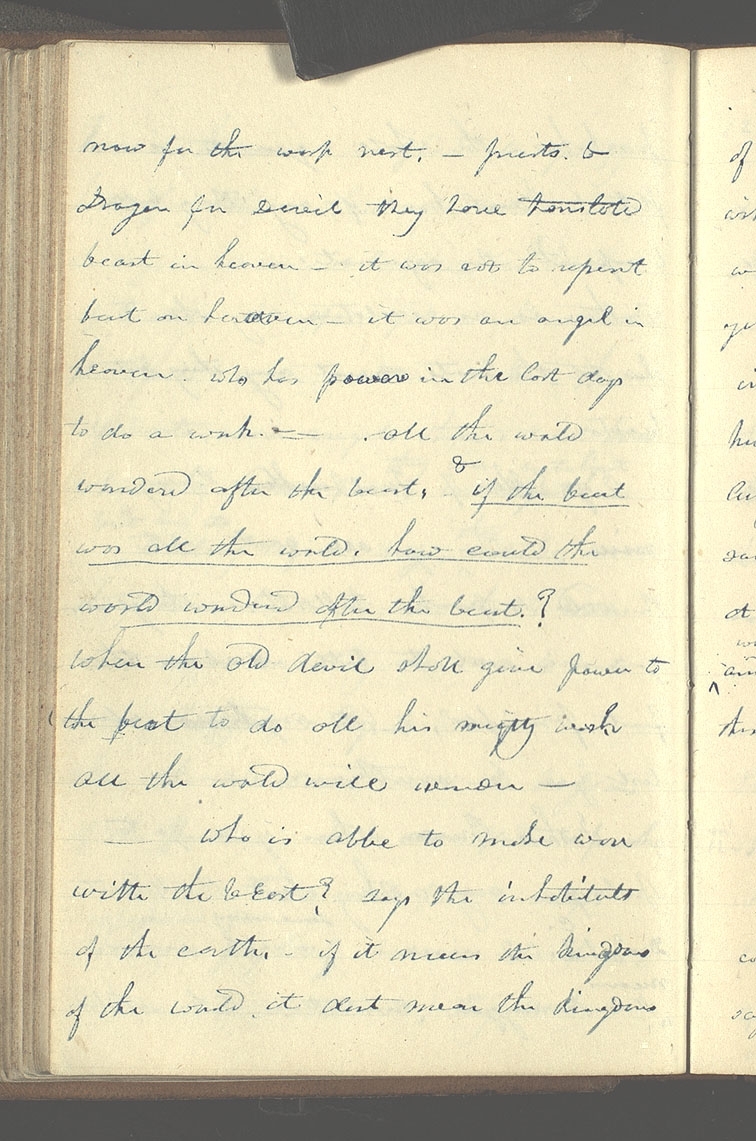 now for the wasp nest. — priests. &
Dragon for Devil they have translated
beast in heaven — it was not to repesent
beast on heaven — it was an angel in
heaven. who has power in the last days
to do a work. — . all the world
wonderd after the beast, & if the beast
was all the world. how could the
world wonderd after the beast.?
When the old devil shall give power to
the beast to do all his mighty work
all the world will wonder —
— who is abbe to make war
with the beast? says the inhabitants
of the earth, - if it means the kingdoms
of the world. it dont mean the kingdoms